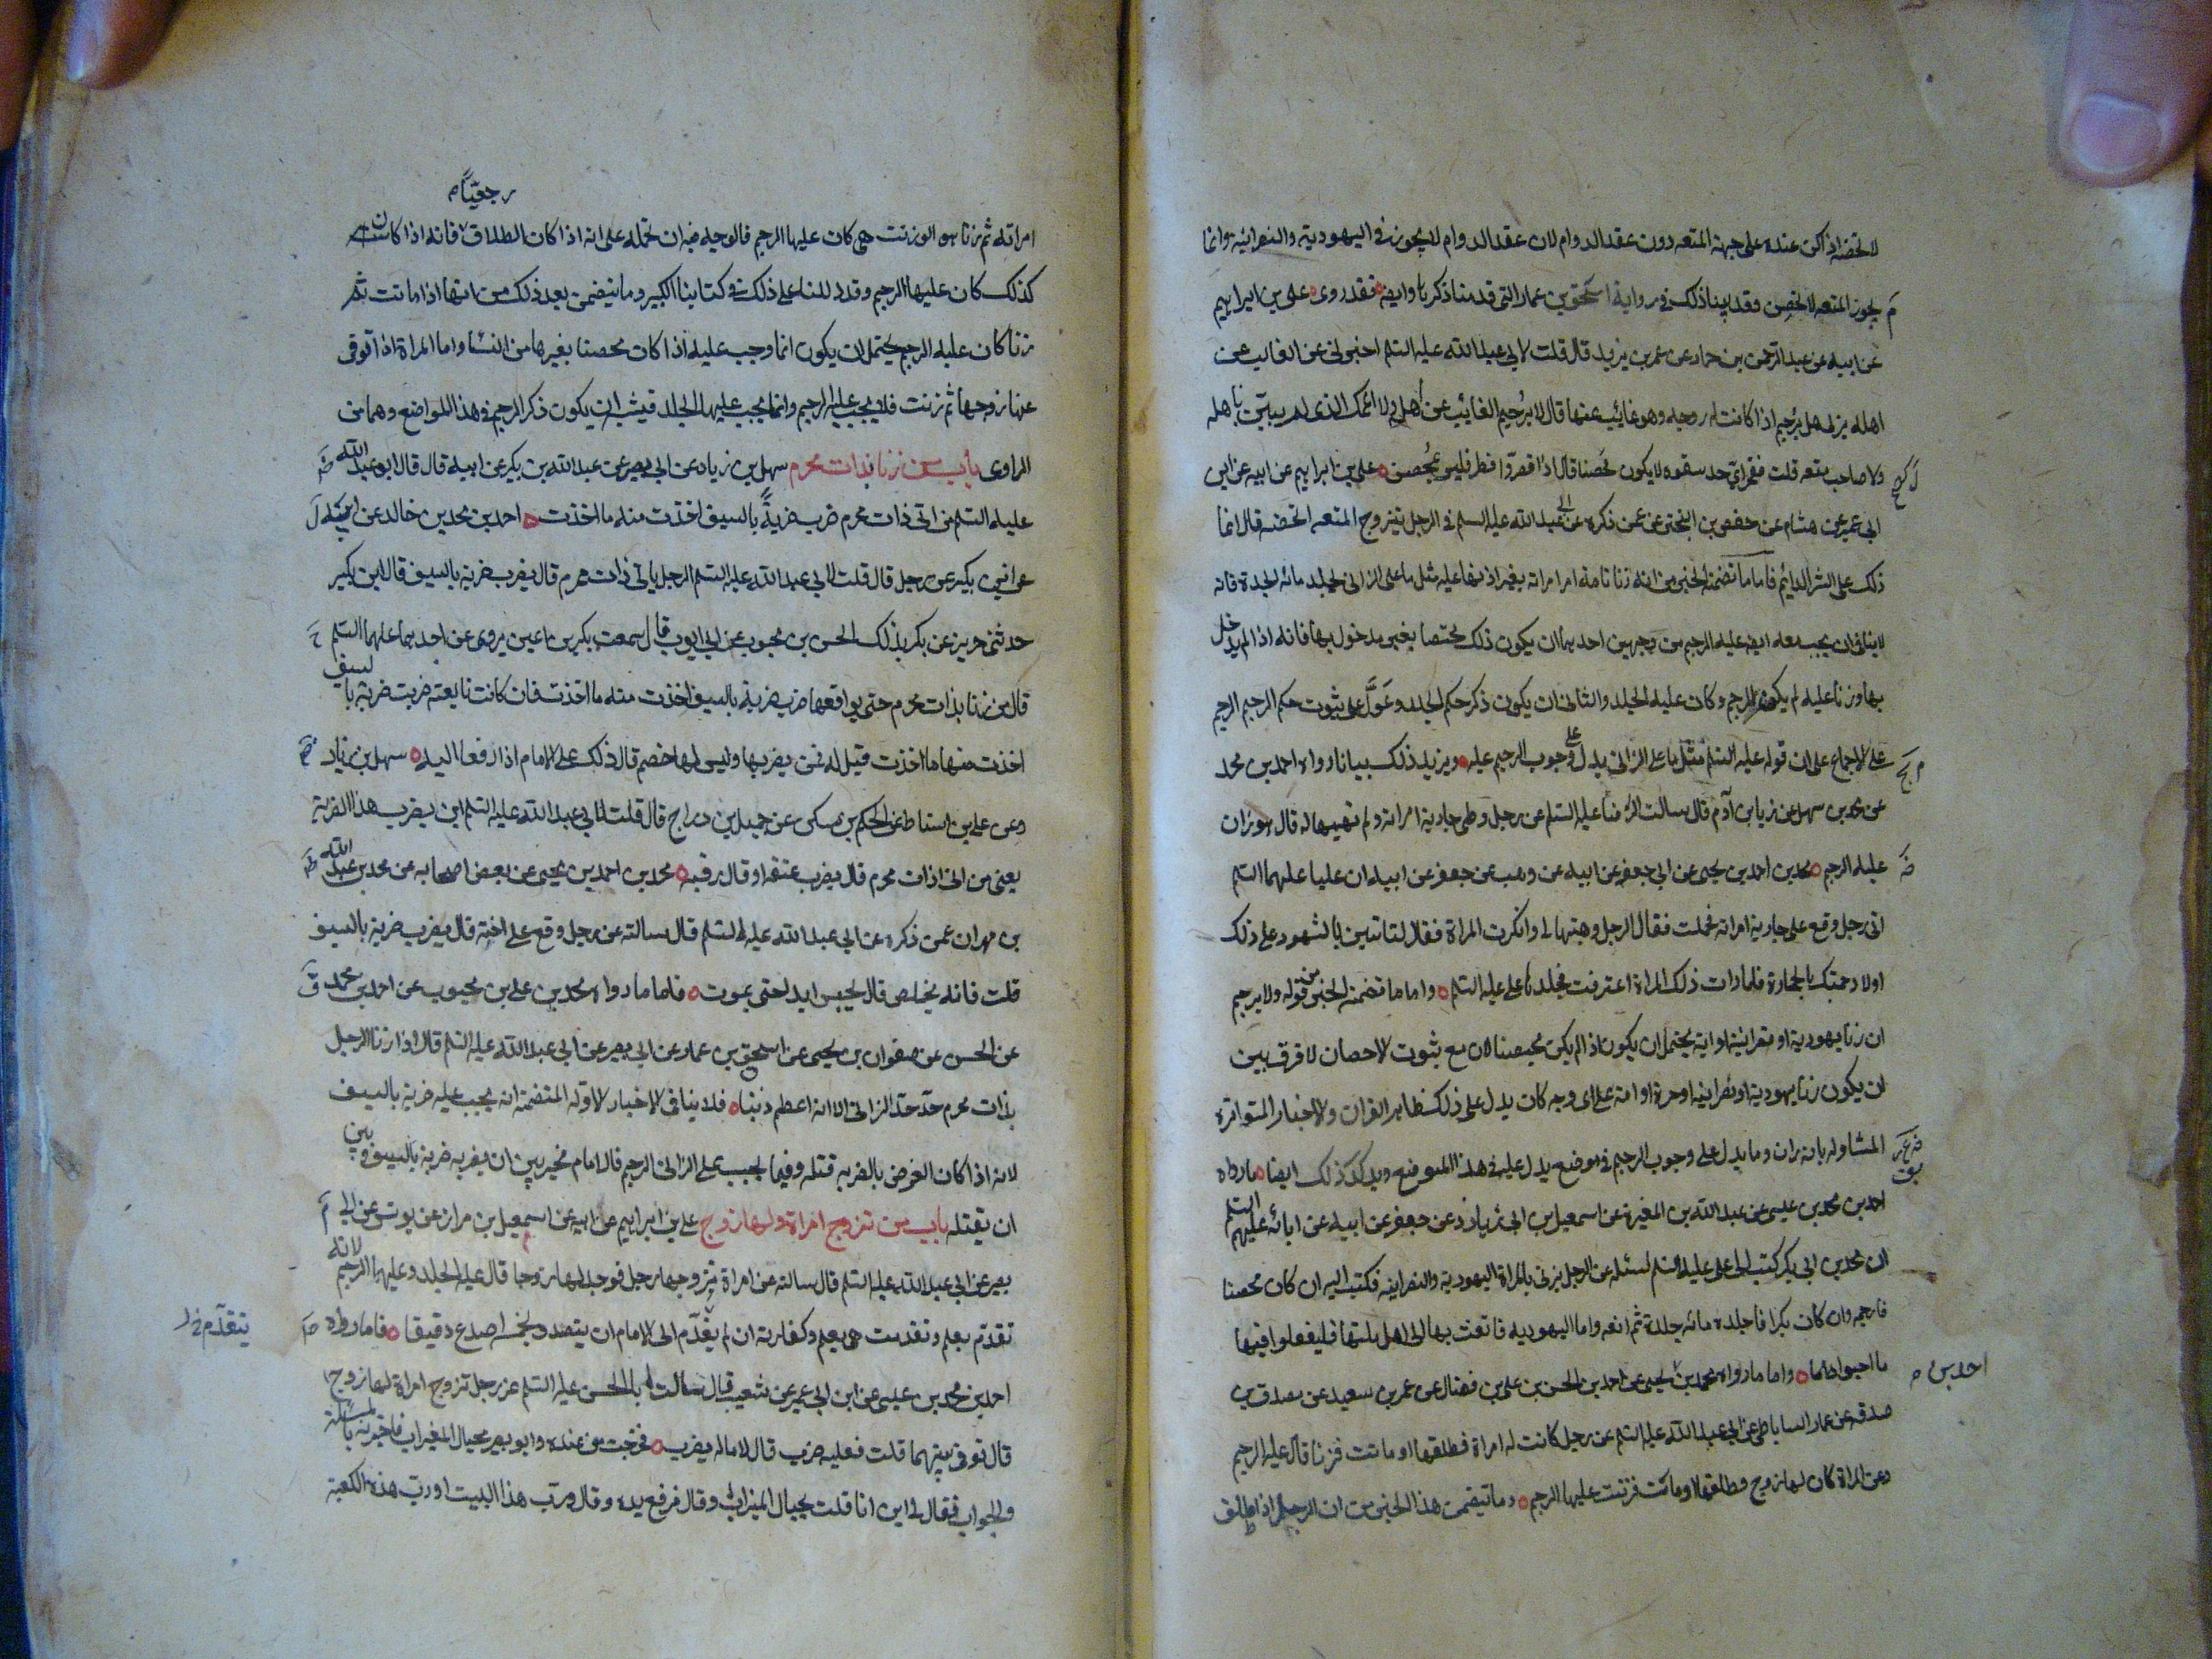 لا تحصنه اذا كن عنده على جهة المتعه دون عقد الدوام لان عقد الدوام لا يجوز في اليهودية والنصرانية وانما
يجوز المتعه لا تحصن وقد بينا ذلك في رواية اسحق بن عمار التى قدمنا ذكرها وايضا فقد روى على بن ابراهيم
عن ابيه عن عبد الرحمن بن حماد عن عمر بن يزيد قال قلت لابي عبد الله عليه السلم اخبرني عن الغايب عن
اهله يزنى هل يرجم اذا كانت له زوجه وهو غائب عنها قال لا يرجم الغائب عن اهله ولا المملك الذى لم يبن باهله
ولا صاحب متعه قلت ففي اي حد سفره لا يكون محصنا قال اذا قصر وافطر فليس بمحصن على بن ابراهيم عن ابيه عن ابن
ابى عمير عن هشام عن حفص بن البختري عمن ذكره عن ابى عبد الله عليه السلم في الرجل يتزوج المتعه اتحصنه قال انما
ذلك على الشئ الدائم فاما ما تضمنه الخبر من انه زنا امراته بغير اذنها عليه مثل ما على الزاني يجلد مائه جلدة فانه
لا ينافي ان يجب معه ايضا عليه الرجم من وجهين احدهما ان يكون ذلك مختصا بغير مدخول بها فانه اذا لم يدخل
بها وزنا عليه لم يكن الرجم وكان عليه الجلد والثانى ان يكون ذكر حكم الجلد وعول على ثبوت حكم الرجم
على الاجماع على ان قوله عليه السلم مثل ما على الزانى يدل على وجوب الرجم عليه ويزيد ذلك بيانا ما رواه احمد بن محمد
عن محمد بن سهل عن زكريا بن آدم قال سالت الرضا عليه السلم عن رجل وطى جارية امراته ولم تهبها له قال هو زان
عليه الرجم محمد بن احمد بن يحيى عن ابي جعفر عن ابيه عن وهب عن جعفر عن ابيه ان عليا عليهما السلم
اتى رجل وقع على جارية امراته فحملت فقال الرجل وهبتها لي وانكرت المراة فقال لتاتين بالشهود على ذلك
اولا رجمتك بالحجارة فلما رات ذلك المراة اعترفت فجلدها على عليه السلم واما ما تضمنه الخبر من قوله ولا يرجم
ان زنا بيهودية او نصرانية او امة يحتمل ان يكون اذا لم يكن محصنا لان مع ثبوت الاحصان لا فرق بين
ان يكون زنا بيهودية او نصرانية او حرة او امة على اى وجه كان يدل على ذلك ظاهر القران والاخبار المتواترة
بانه زان وما يدل على وجوب الرجم في موضع يدل عليه في هذا الموضع ويدل كذلك ايضا ما رواه
احمد بن محمد بن عيسى عن عبد الله بن المغيرة عن اسمعيل بن ابي زياد عن جعفر عن ابيه عن ابائه عليهم السلم
ان محمد بن ابي بكر كتب الى على عليه السلم يسئله عن الرجل يزنى بالمراة اليهودية والنصرانية فكتب اليه ان كان محصنا
فارجمه وان كان بكرا فاجلده مائه جلدة ثم انفه واما اليهوديه فابعث بها الى اهل ملتها فليفعلوا فيها
ما احبوا واما ما رواه محمد بن يحيى عن احمد بن الحسن بن على بن فضال عن عمرو بن سعيد عن مصدق بن
احمد بن
صدقه عن عمار الساباطي عن ابي عبد الله عليه السلم عن رجل كانت له امراة فطلقها او ماتت فزنا قال عليه الرجم
وعن المراة كان لها زوج فطلقها او مات فزنت عليها الرجم وما تيضمن هذا الخبر من ان الرجل اذا طلق
رجعيا
امراته ثم زنا هو او زنت هى كان عليها الرجم فالوجه فيه ان نحمله على انه اذا كان الطلاق فانه اذا كان
كذلك كان عليها الرجم وقد دللنا على ذلك في كتابنا الكبير وما تيضمن بعد ذلك من انها اذا ماتت ثم
زنا كان عليه الرجم يحتمل ان يكون انما وجب عليه اذا كان محصنا بغيرها من النسا واما المراة اذا توفى
عنها زوجها ثم زنت فلا يجب عليها الرجم وانما يجب عليها الجلد فيشبه ان يكون ذكر الرجم في هذا المواضع وهما من
الراوى باب من زنا بذات محرم سهل بن زياد عن ابي بصير عن عبد الله بن بكير عن ابيه قال قال ابو عبد الله
عليه السلم من اتى ذات محرم ضرب ضربة بالسيف اخذت منه ما اخذت احمد بن محمد بن خالد عن ابيه
عن ابن بكير عن رجل قال قلت لابي عبد الله عليه السلم الرجل ياتى ذات محرم قال يضرب ضربة بالسيف قال ابن بكير
حدثني حريز عن بكير بذلك الحسن بن محبوب عن ابي ايوب قال سمعت بكير بن اعين يروى عن احدهما عليهما السلم
قال من زنا بذات محرم حتى يواقعها ضرب ضربة بالسيف اخذت منه ما اخذت فان كانت تابعته ضربت ضربة بالسيف
اخذت منها ما اخذت قيل له فمن يضربها وليس لها خصم قال ذلك على الامام اذا رفعا اليه سهل بن زياد
وعن على بن اسباط عن الحكم بن مسكين عن جميل بن دراج قال قلت لابي عبد الله عليه السلم اين يضرب هذا الضربة
يعنى من اتى ذات محرم قال يضرب عنقه او قال رقبته محمد بن احمد بن يحيى عن بعض اصحابه عن محمد بن عبد الله
بن مهران عمن ذكره عن ابي عبد الله عليه السلم قال سالته عن رجل وقع على اخته قال يضرب ضربة بالسيف
قلت فانه يخلص قال يحبس ابدا حتى يموت فاما ما رواه محمد بن على بن محبوب عن احمد بن محمد
عن الحسن عن صفوان بن يحيى عن اسحق بن عمار عن ابي بصير عن ابي عبد الله عليه السلم قال اذا زنا الرجل
بذات محرم حد حد الزانى الا انه اعظم ذنبا فلا ينافى الاخبار الاوله المتضمنة انه يجب عليه ضربة بالسيف
لانه اذا كان الغرض بالضربه قتله وفيما يجب على الزانى الرجم فالامام مخير بين ان يضربه ضربة بالسيف وبين
ان يقتله باب من تزوج امراة ولها زوج على بن ابراهيم عن ابيه عن اسمعيل بن مرار عن يونس عن ابى
بصير عن ابي عبد الله عليه السلم قال سالته عن امراة تزوجها رجل فوجد لها زوجا قال عليه الجلد وعليها الرجم لانه
تقدم بعلم وتقدمت هى بعلم وكفارته ان لم يقدم الى الامام ان يتصدق بخمسه اصوع دقيقا فاما ما رواه
يتقدم
احمد بن محمد بن عيسى عن ابن ابي عمير عن شعيب قال سالت ابا الحسن عليه السلم عن رجل تزوج امراة لها زوج
قال يفرق بينهما قلت فعليه ضرب قال لا ماله يضرب فخرجت من عنده وابو بصير بحيال الميزاب فاخبرته بالمسئلة
والجواب فقال لى اين انا قلت بحيال الميزاب وقال فرفع يده وقال ورب هذا البيت او رب هذه الكعبة